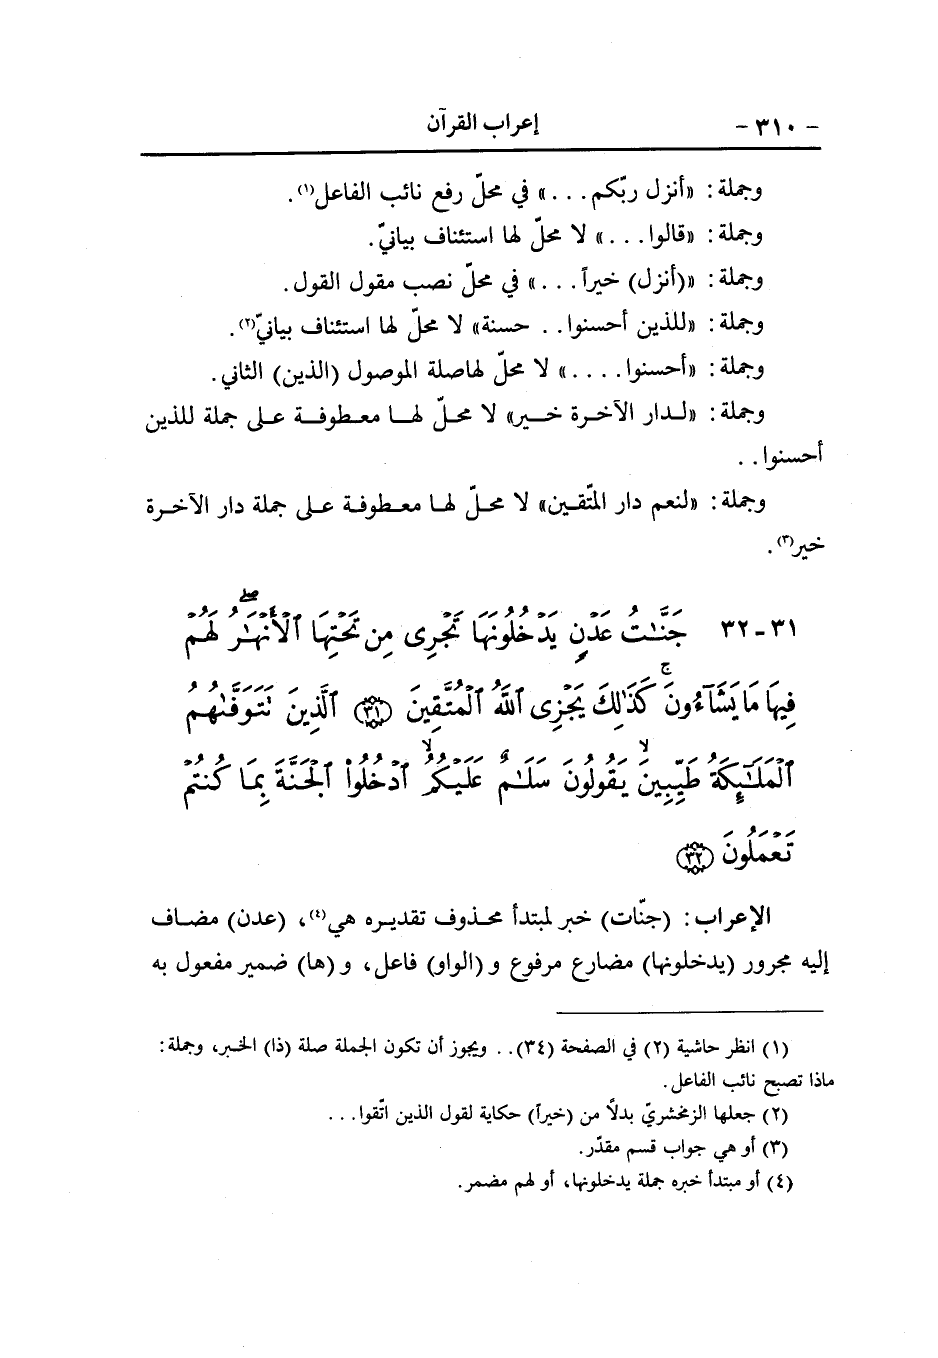 - ٣١٠ - إعراب القرآن
وجملة: «أنزل ربّكم...» في محلّ رفع نائب الفاعل(١).
وجملة: «قالوا...» لا محلّ لها استئناف بيانيّ.
وجملة: «(أنزل) خيراً...» في محلّ نصب مقول القول.
وجملة: «للذين أحسنوا.. حسنة» لا محلّ لها استئناف بيانيّ(٢).
وجملة: «أحسنوا....» لا محلّ لهاصلة الموصول (الذين) الثاني.
وجملة: «لـدار الآخـرة خـيـر» لا محـلّ لهـا معـطوفـة عـلى جملة للذين
أحسنوا..
وجملة: «لنعم دار المتّقـين» لا محـلّ لهـا معـطوفـة عـلى جملة دار الآخـرة
خير(٣).
٣١-٣٢ جَنَّٰتُ عَدْنٍ يَدْخُلُونَهَا تَجْرِى مِن تَحْتِهَا ٱلْأَنْهَٰرُ ۖ لَهُمْ
فِيهَا مَا يَشَآءُونَ ۚ كَذَٰلِكَ يَجْزِى ٱللَّهُ ٱلْمُتَّقِينَ ﴿٣١﴾ ٱلَّذِينَ تَتَوَفَّىٰهُمُ
ٱلْمَلَٰٓئِكَةُ طَيِّبِينَ ۙ يَقُولُونَ سَلَٰمٌ عَلَيْكُمُ ۙ ٱدْخُلُوا۟ ٱلْجَنَّةَ بِمَا كُنتُمْ
تَعْمَلُونَ ﴿٣٢﴾
الإعراب: (جنّات) خبر لمبتدأ محـذوف تقديـره هي(٤)، (عدن) مضـاف
إليه مجرور (يدخلونها) مضارع مرفوع و(الواو) فاعل، و(ها) ضمير مفعول به
(١) انظر حاشية (٢) في الصفحة (٣٤).. ويجوز أن تكون الجملة صلة (ذا) الخـبر، وجملة:
ماذا تصبح نائب الفاعل.
(٢) جعلها الزمخشريّ بدلاً من (خيراً) حكاية لقول الذين اتّقوا...
(٣) أو هي جواب قسم مقدّر.
(٤) أو مبتدأ خبره جملة يدخلونها، أو لهم مضمر.